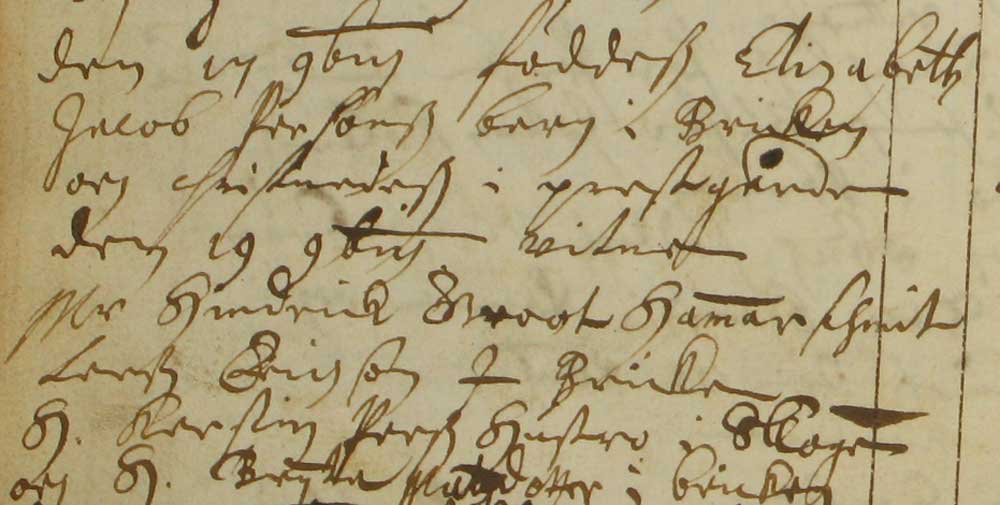 den 17 9bris föddeß Elizabeth
Jacob Perßons barn i Bricken
och Christnedeß i prestgården
den 19 9bris vitne
Mr Hindrick Skroot Hammarschmit
Larß Erichson I Bricken
H. Kerstin Perß Hustro i Skogen
och H. Bengta Matzdotter i bricken